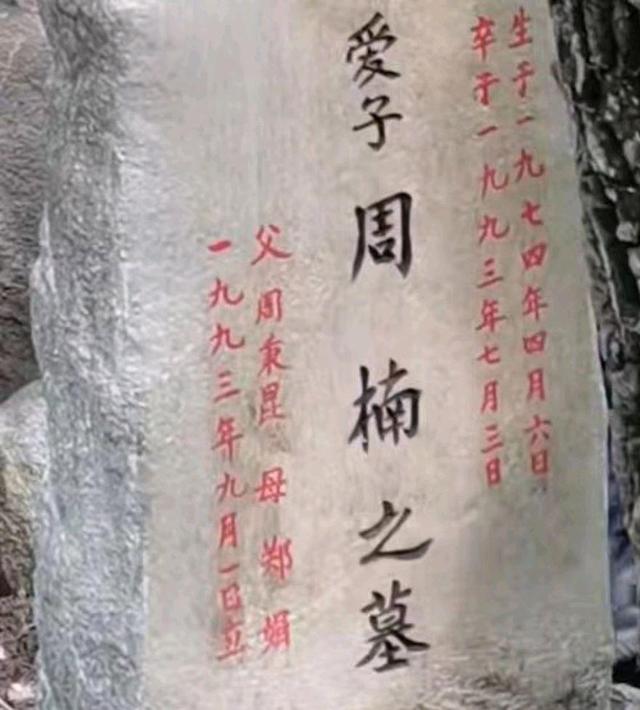 生于一九七四年四月六日
卒于一九九三年七月三日
爱子周楠之墓
父周秉昆 母郑娟
一九九三年九月一日立